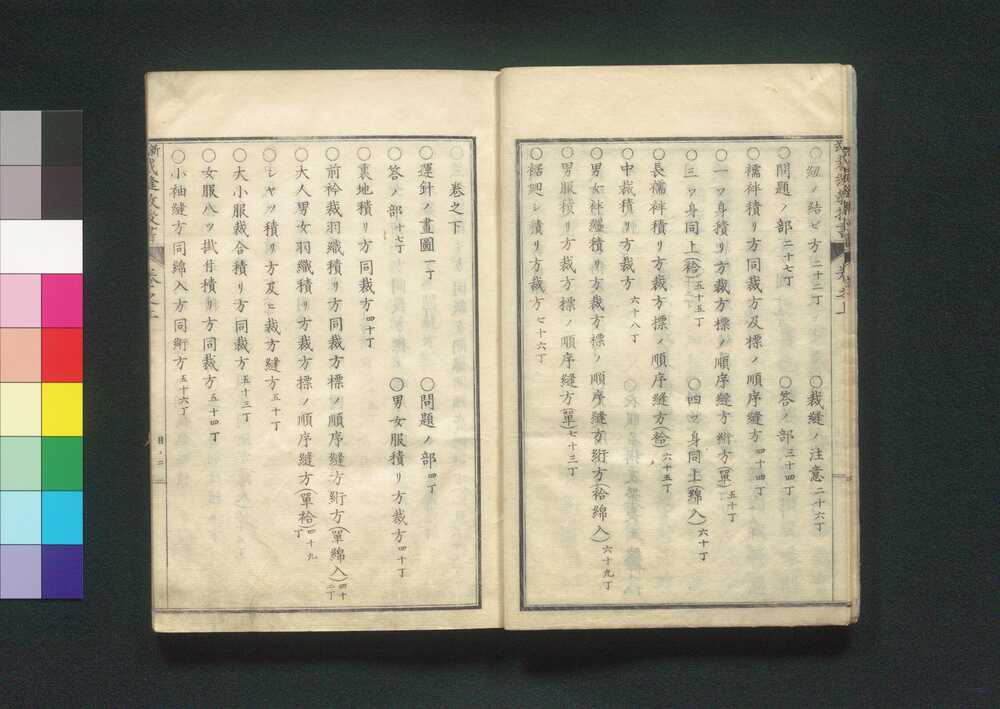 ○紐ノ結ビ方二十二丁　○裁縫ノ注意二十六丁
○問題ノ部二十七丁　○答ノ部三十四丁
○襦袢積リ方同裁方及標ノ順序縫方四十四丁
○一ツ身積リ方裁方標ノ順序縫方絎方(單)五十丁
○三ツ身同上(袷)五十五丁　○四ツ身同上(綿入)六十丁
○長襦袢積リ方裁方標ノ順序縫方(袷)六十五丁
○中裁積リ方裁方六十八丁
○男女袢纏積リ方裁方標ノ順序縫方絎方(袷綿入)六十九丁
○男服積リ方裁方標ノ順序縫方(單)七十三丁
○裾廻シ積リ方裁方七十六丁
○卷之下
○運針ノ畫圖一丁　○問題ノ部四丁
○答ノ部十七丁　○男女服積リ方裁方四十丁
○裏地積リ方同裁方四十丁
○前衿裁羽織積リ方同裁方標ノ順序縫方絎方(單綿入)四十二丁
○大人男女羽織積リ方裁方標ノ順序縫方(單袷)四十九丁
○シヤツ積リ方及ニ裁方縫方五十丁
○大小服裁合積リ方同裁方五十三丁
○女服八ツ掛付積リ方同裁方五十四丁
○小袖縫方同綿入方同絎方五十六丁
目ノ二